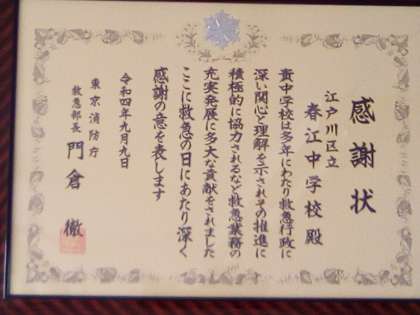 感謝状
江戸川区立
春江中学校殿
貴中学校は多年にわたり救急行政に
深い関心と理解を示されその推進に
積極的に協力されるなど救急業務の
充実発展に多大な貢献をされました
ここに救急の日にあたり深く
感謝の意を表します
令和四年九月九日
東京消防庁
救急部長 門倉 徹